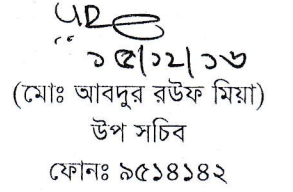 ১৫/১২/১৬
(মোঃ আবদুর রউফ মিয়া)
উপ সচিব
ফোনঃ ৯৫১৪১৪২